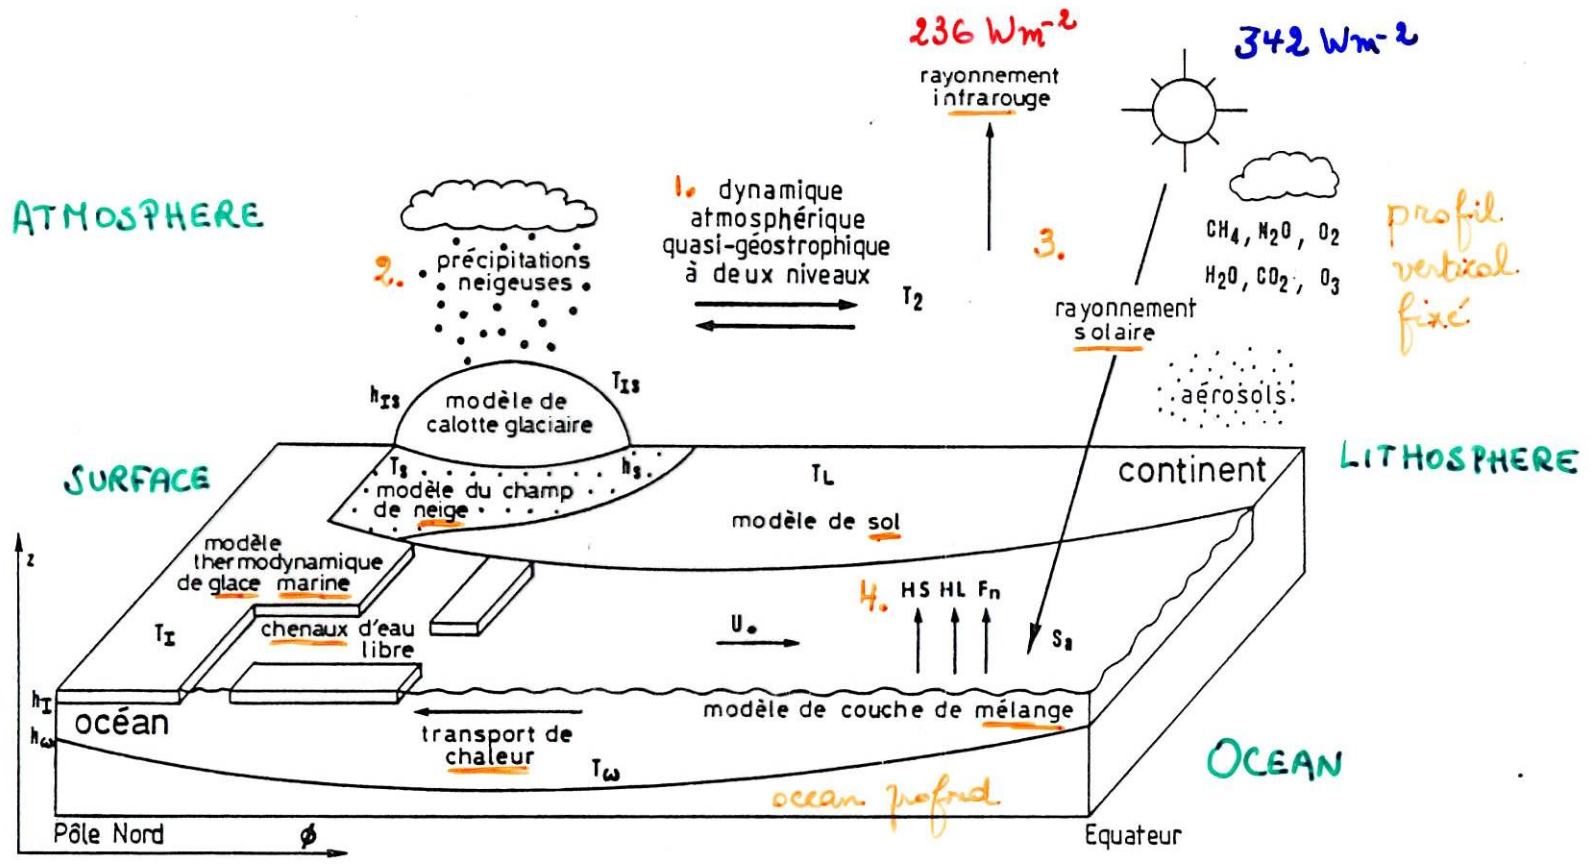 236 Wm⁻²
342 Wm⁻²
rayonnement
infrarouge
ATMOSPHERE
1. dynamique
atmosphérique
quasi-géostrophique
à deux niveaux
T₂
2. précipitations
neigeuses
3.
CH₄, N₂O, O₂
H₂O, CO₂, O₃
profil
vertical
fixé
rayonnement
solaire
aérosols
h_IS
T_IS
modèle de
calotte glaciaire
SURFACE
T_S
h_S
modèle du champ
de neige
T_L
continent
LITHOSPHERE
modèle de sol
z
modèle
thermodynamique
de glace marine
T_I
chenaux d'eau
libre
4. HS HL Fn
U.
Sa
h_I
océan
h_ω
transport de
chaleur
modèle de couche de mélange
T_ω
OCEAN
ocean profnd
Pôle Nord
ϕ
Equateur